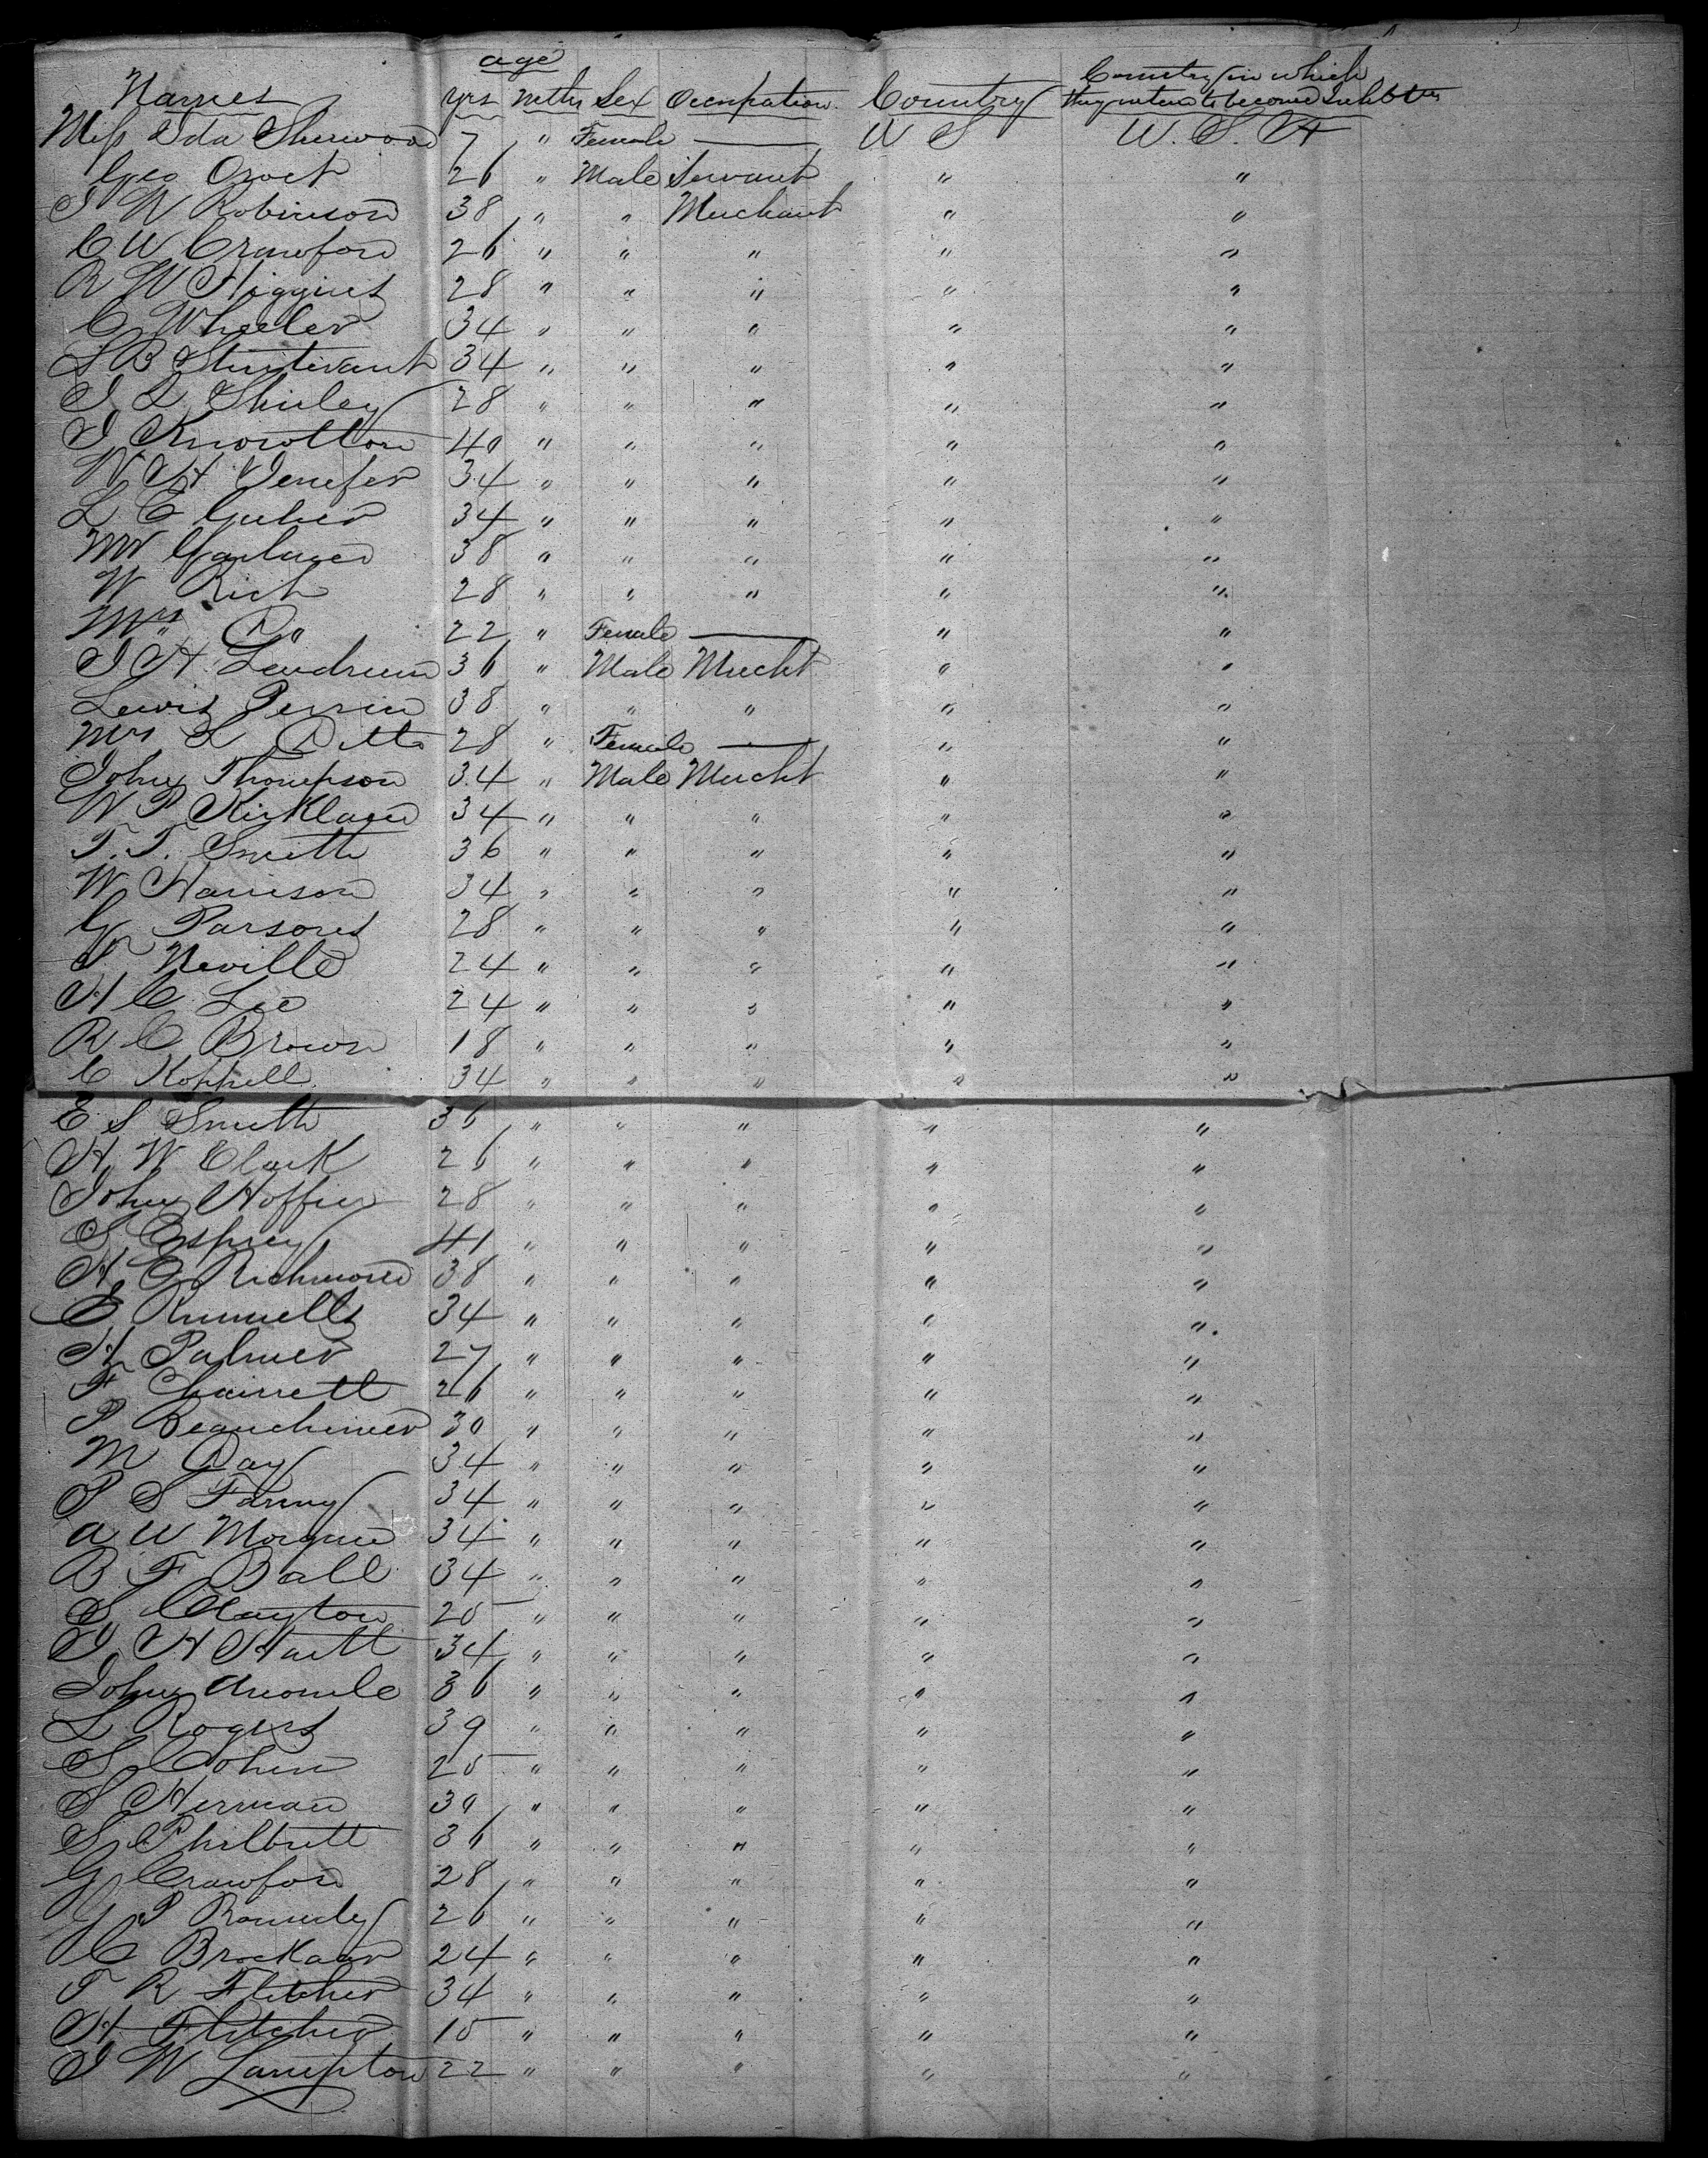 age
Names yrs mths Sex Occupation Country Country in which they intend to become Inhbtts
Miss Ida Sherwood 7 " Female — U S U. S. A
Geo Orock 26 " Male Servant " "
J W Robinson 38 " " Merchant " "
C W Crawford 26 " " " " "
R W Higgins 28 " " " " "
C Wheeler 34 " " " " "
L B Sturtivant 34 " " " " "
J L Shirley 28 " " " " "
J Knowlton 40 " " " " "
W H Jenefer 34 " " " " "
L E 34 " " " " "
Mr 38 " " " " "
W Rich 28 " " " " "
Mrs " Do 22 " Female — " "
J H Lendrum 36 " Male Mercht " "
Lewis Perrin 38 " " " " "
Mrs L Ditto 28 " Female — " "
John Thompson 34 " Male Mercht " "
W P Kirkland 34 " " " " "
T. T. Smith 36 " " " " "
W Harrison 34 " " " " "
G Parsons 28 " " " " "
T Neville 24 " " " " "
H C Lee 24 " " " " "
R C Brown 18 " " " " "
C Koppell 34 " " " " "
E S Smith 36 " " " " "
H W Clark 26 " " " " "
John Hoffer 28 " " " " "
S Esprey 41 " " " " "
H E Richmond 38 " " " " "
E Runnells 34 " " " " "
H Palmer 27 " " " " "
F 26 " " " " "
P 30 " " " " "
M Day 34 " " " " "
P S Fanny 34 " " " " "
A W Morgan 34 " " " " "
B F Ball 34 " " " " "
S Clayton 25 " " " " "
J H Hartt 34 " " " " "
John 36 " " " " "
L Rogers 39 " " " " "
S Cohen 25 " " " " "
S Herman 30 " " " " "
S Philbrett 36 " " " " "
G Crawford 28 " " " " "
G P 26 " " " " "
C Brokaw 24 " " " " "
T R Fletcher 34 " " " " "
H Fletcher 15 " " " " "
J W Lampton 22 " " " " "